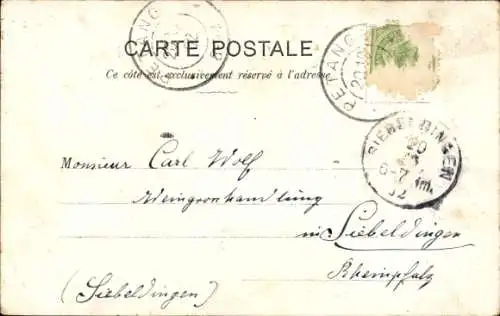 PENANG
CARTE POSTALE
PENANG
Ce côté est exclusivement réservé à l'adresse
SIEBELDINGEN
20
6-7
02
Monsieur Carl Wolf
Weingroonhandlung
in Siebeldingen
Rheinpfalz
(Siebeldingen)